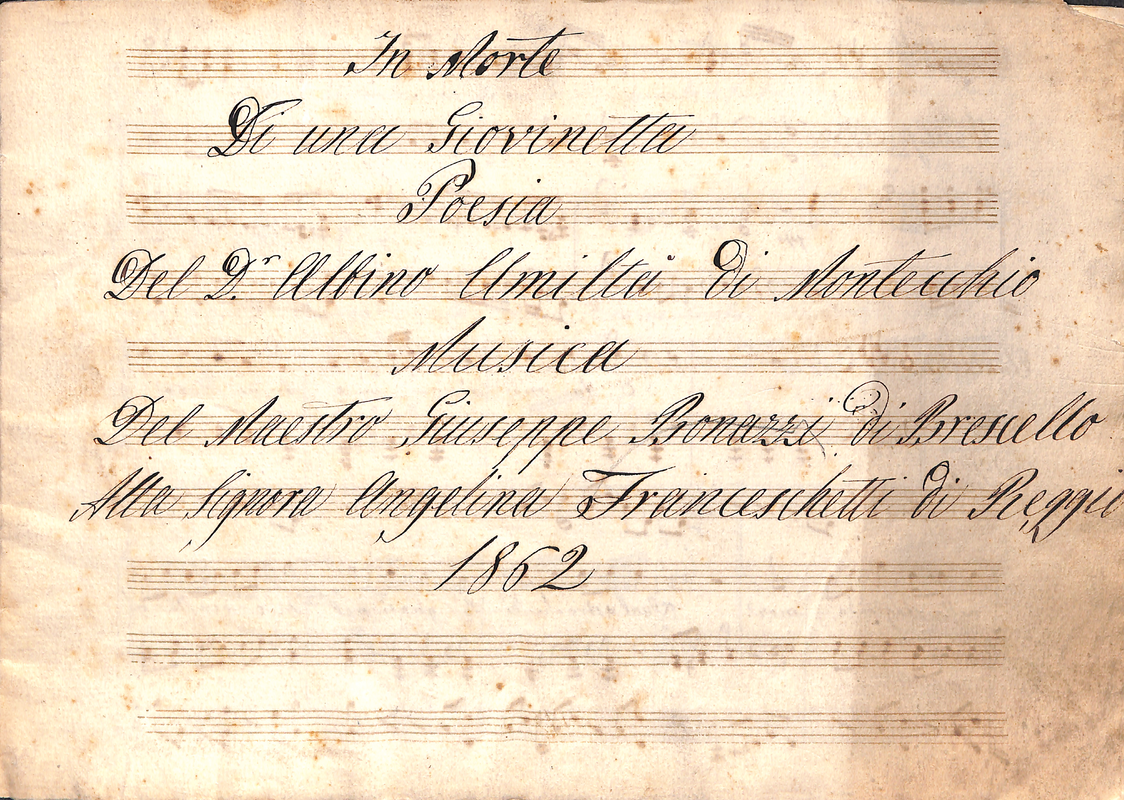 In Morte
Di una Giovinetta
Poesia
Del D.r Albino Umiltà di Montecchio
Musica
Del Maestro Giuseppe Bonazzi di Brescello
Alla Signora Angelina Franceschetti di Reggio
1862